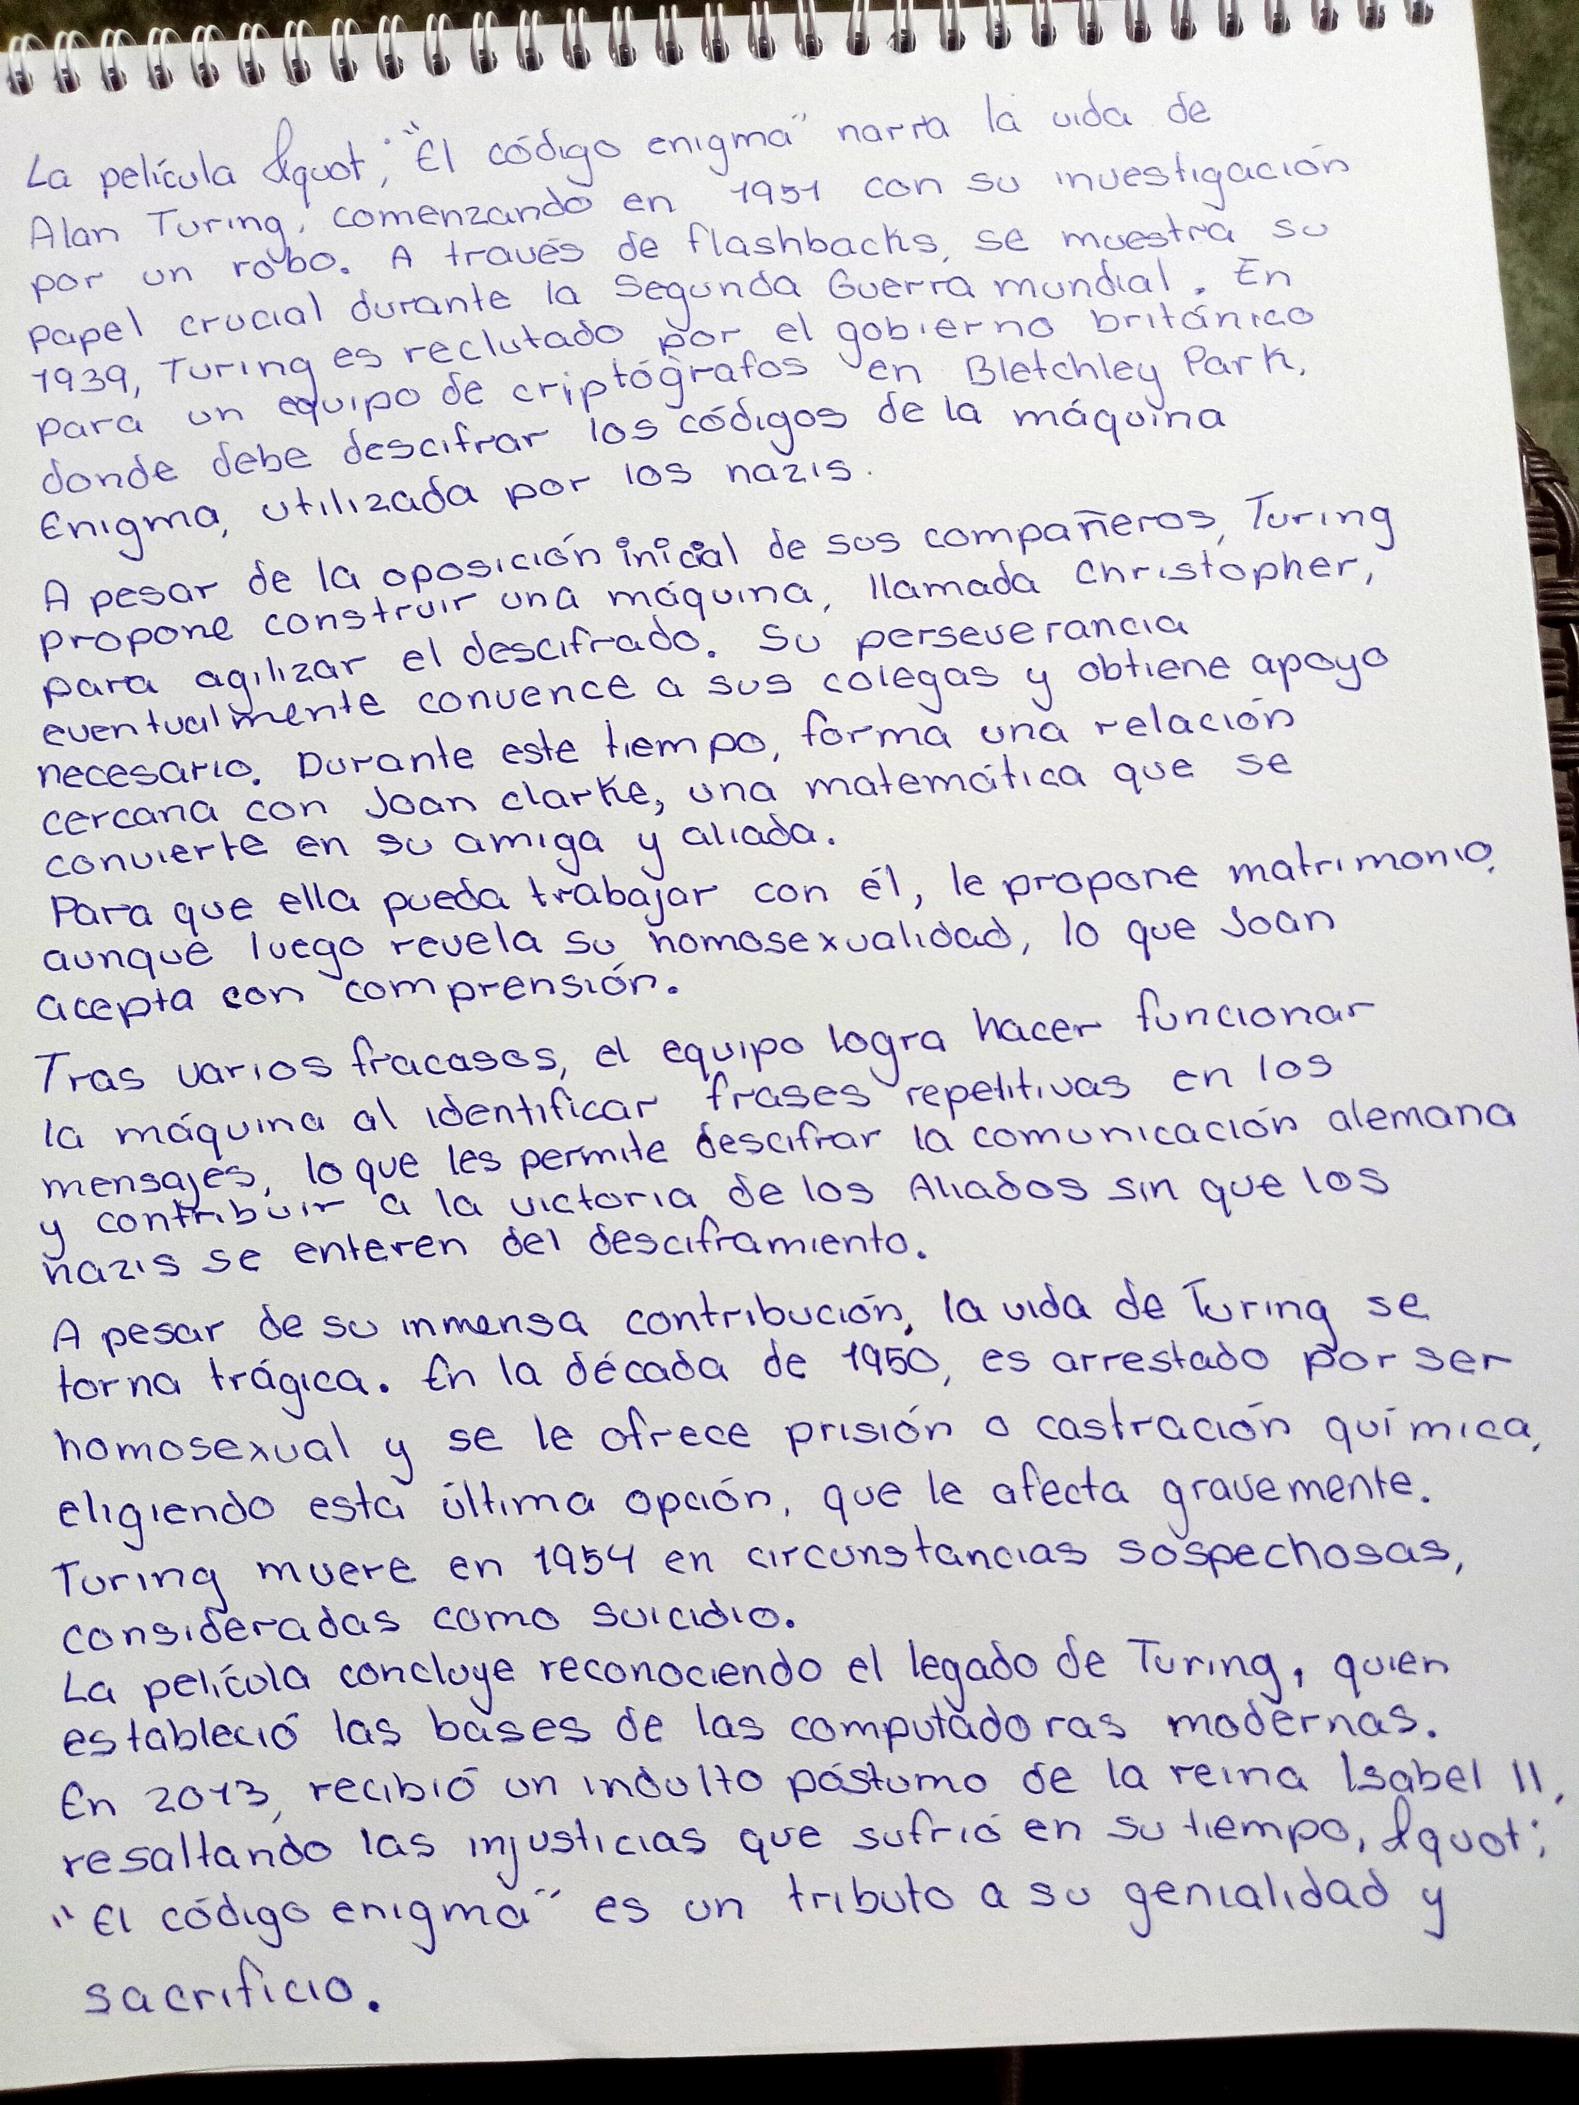 La película &quot; "El código enigma" narra la vida de
Alan Turing, comenzando en 1951 con su investigación
por un robo. A través de flashbacks, se muestra su
papel crucial durante la Segunda Guerra mundial. En
1939, Turing es reclutado por el gobierno británico
para un equipo de criptógrafos en Bletchley Park,
donde debe descifrar los códigos de la máquina
Enigma, utilizada por los nazis.
A pesar de la oposición inicial de sus compañeros, Turing
propone construir una máquina, llamada Christopher,
para agilizar el descifrado. Su perseverancia
eventualmente convence a sus colegas y obtiene apoyo
necesario. Durante este tiempo, forma una relación
cercana con Joan clarke, una matemática que se
convierte en su amiga y aliada.
Para que ella pueda trabajar con él, le propone matrimonio,
aunque luego revela su homosexualidad, lo que Joan
acepta con comprensión.
Tras varios fracasos, el equipo logra hacer funcionar
la máquina al identificar frases repetitivas en los
mensajes, lo que les permite descifrar la comunicación alemana
y contribuir a la victoria de los Aliados sin que los
nazis se enteren del desciframiento.
A pesar de su inmensa contribución, la vida de Turing se
torna trágica. En la década de 1950, es arrestado por ser
homosexual y se le ofrece prisión o castración química,
eligiendo esta última opción, que le afecta gravemente.
Turing muere en 1954 en circunstancias sospechosas,
consideradas como suicidio.
La película concluye reconociendo el legado de Turing, quien
estableció las bases de las computadoras modernas.
En 2013, recibió un indulto póstumo de la reina Isabel II,
resaltando las injusticias que sufrió en su tiempo, &quot;
"El código enigma" es un tributo a su genialidad y
sacrificio.